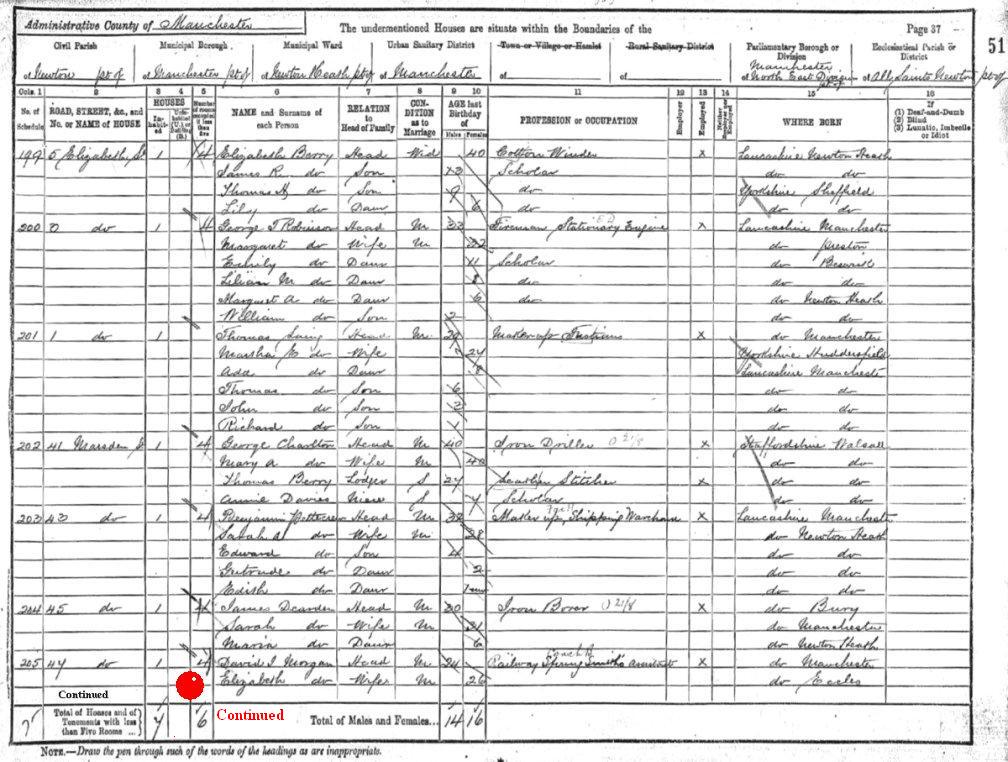 Administrative County of Manchester The undermentioned Houses are situate within the Boundaries of the Page 37
51
Civil Parish Municipal Borough Municipal Ward Urban Sanitary District Town or Village or Hamlet Rural Sanitary District Parliamentary Borough or Division Ecclesiastical Parish or District
of Newton pt of of Manchester pt of of Newton Heath pt of of Manchester of of Manchester of North East Division pt of of All Saints Newton pt of
Cols. 1 2 3 4 5 6 7 8 9 10 11 12 13 14 15 16
No. of Schedule ROAD, STREET, &c., and No. or NAME of HOUSE HOUSES Inhabited Uninhabited (U.) or Building (B.) Number of rooms occupied if less than five NAME and Surname of each Person RELATION to Head of Family CONDITION as to Marriage AGE last Birthday of Males Females PROFESSION or OCCUPATION Employer Employed Neither Employer nor Employed WHERE BORN If (1) Deaf-and-Dumb (2) Blind (3) Lunatic, Imbecile or Idiot
199 5 Elizabeth St 1 4 Elizabeth Berry Head Wid 40 Cotton Winder x Lancashire Newton Heath
James R. do Son 13 Scholar do do
Thomas H do Son 9 do Yorkshire Sheffield
Lily do Daur 6 do do do
200 do 1 4 George T Robinson Head M 33 Fireman Stationary Engine x Lancashire Manchester
Margaret do Wife M 32 do Preston
Emily do Daur 11 Scholar do Beswick
Lilian M do Daur 8 do do do
Margaret A do Daur 6 do do Newton Heath
William do Son 2 do do
201 1 do 1 Thomas Laing Head M 29 Maker up Fustians x do Manchester
Martha E do Wife 27 Yorkshire Huddersfield
Ada do Daur 8 Lancashire Manchester
Thomas do Son 6 do do
John do Son 3 do do
Richard do Son 1 do do
202 41 Marsden St 1 4 George Charlton Head M 40 Iron Driller x Staffordshire Walsall
Mary A do Wife M 40 do do
Thomas Berry Lodger S 27 Leather Stitcher x do do
Annie Davies Niece S 7 Scholar do do
203 43 do 1 4 Benjamin Head M 32 Maker up, Shipping Wareham x Lancashire Manchester
Sarah A do Wife M 28 do Newton Heath
Edward do Son 4 do do
Gertrude do Daur 2 do do
Edith do Daur do do
204 45 do 1 James Dearden Head M 30 Iron Borer x do Bury
Sarah do Wife M 31 do Manchester
Maria do Daur 6 do Newton Heath
205 47 do 1 4 David J Morgan Head M 24 Railway Spring Smith's Assistant x do Manchester
Elizabeth do Wife M 26 do Eccles
Continued
Total of Houses and of Tenements with less than Five Rooms ... 7 6 Continued Total of Males and Females... 14 16
NOTE.—Draw the pen through such of the words of the headings as are inappropriate.